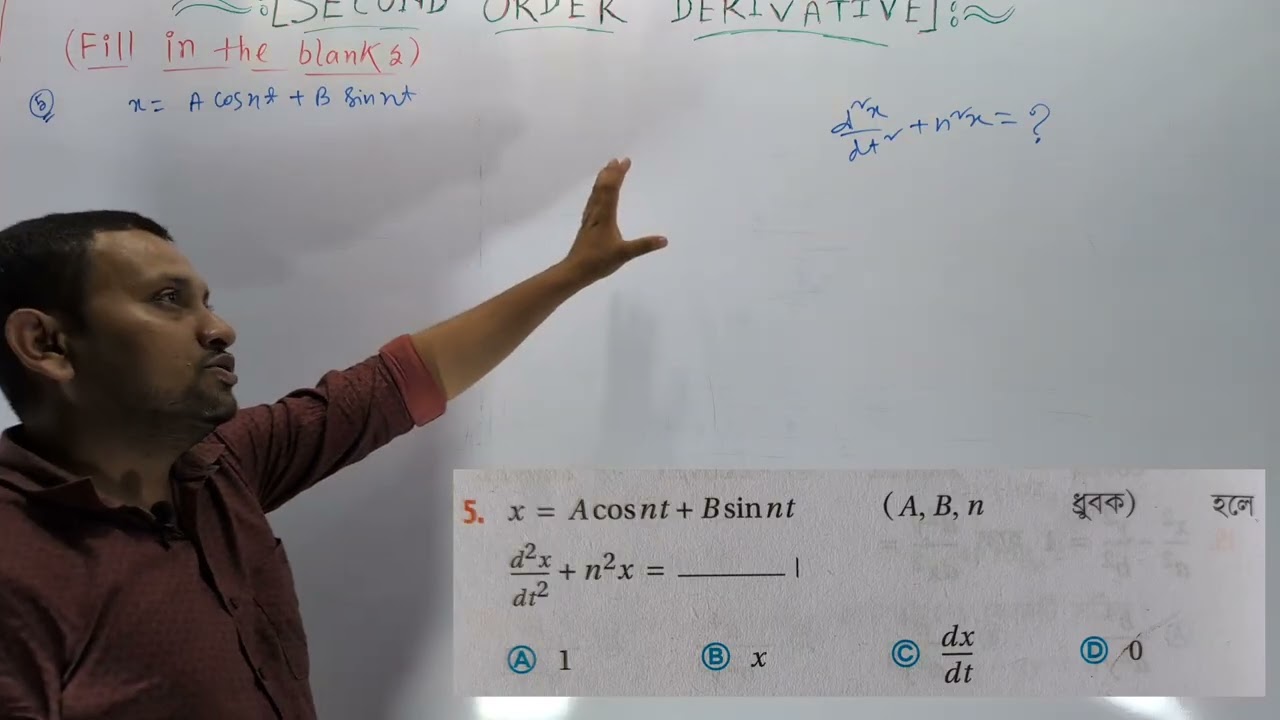 ≈:[SECOND ORDER DERIVATIVE]:≈
(Fill in the blanks)
⑤ x = A cosnt + B sinnt
d²x/dt² + n²x = ?
5. x = A cos nt + B sin nt (A, B, n ধ্রুবক) হলে
d²x/dt² + n²x = ________ ।
Ⓐ 1 Ⓑ x Ⓒ dx/dt Ⓓ 0